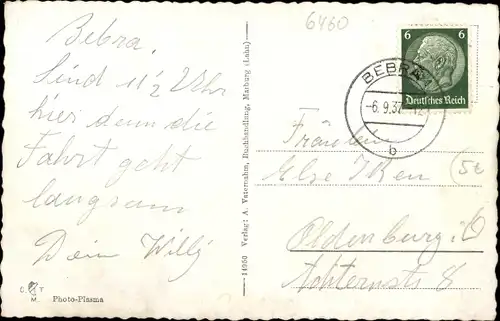 6460
Bebra.
Sind 11½ Uhr
hier denn die
Fahrt geht
langsam
Dein Willy
C. T
M. Photo-Plasma
14950 Verlag: A. Vaternahm, Buchhandlung, Marburg (Lahn)
6 6
Deutsches Reich
BEBRA
-6.9.37.-12
b
Fräulein
Else Iken
5€
Oldenburg i/O
Achternstr 8